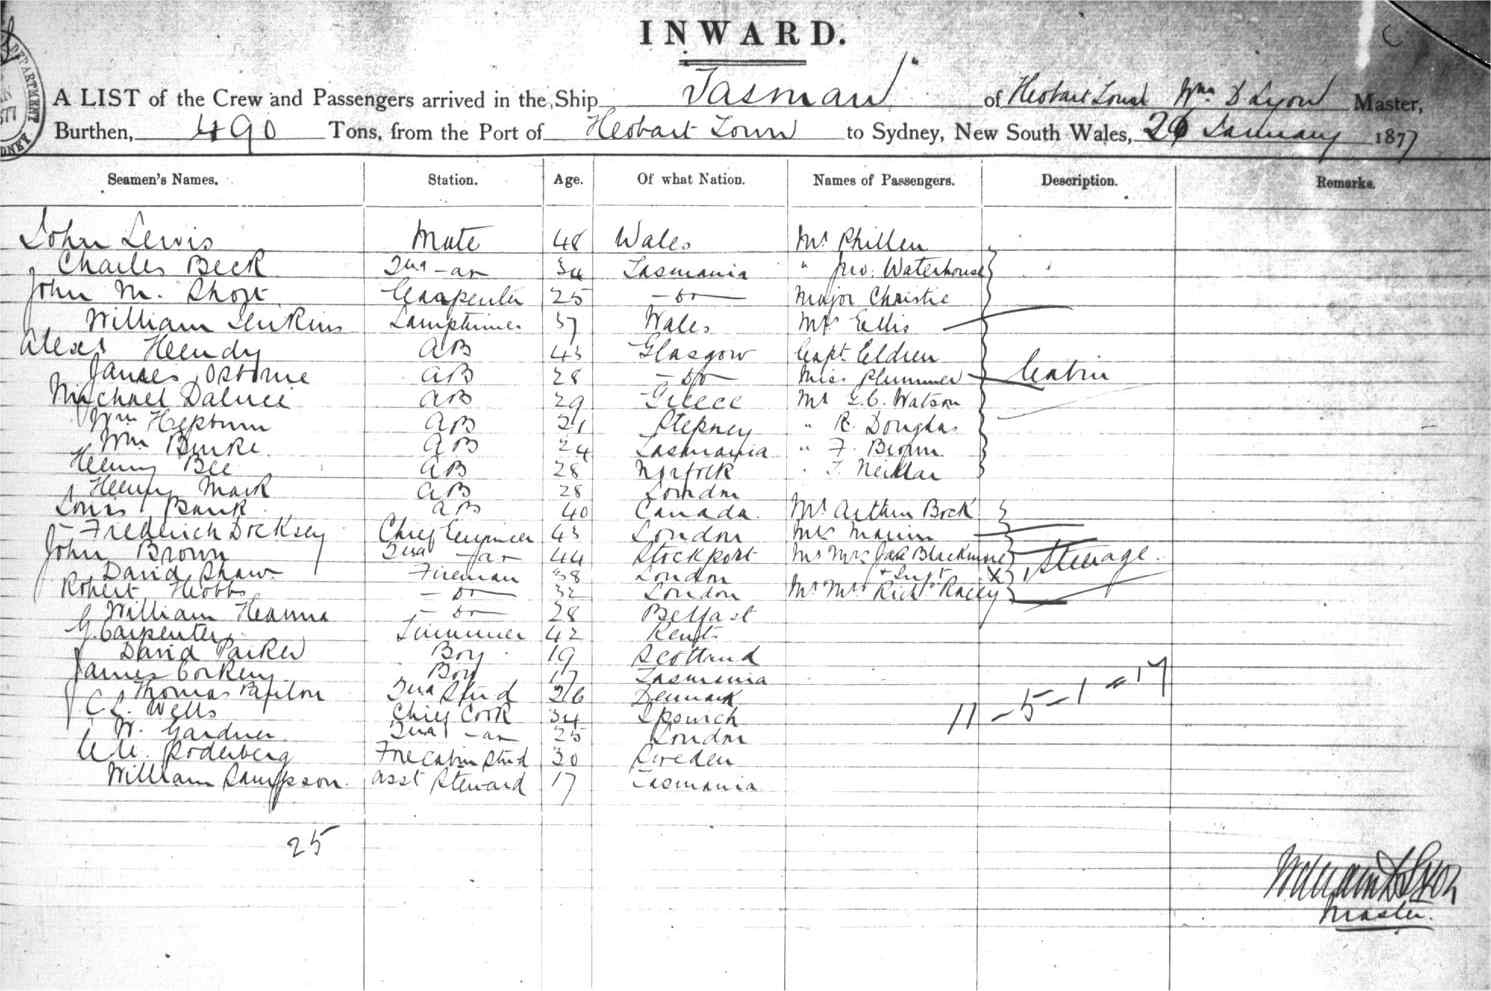 INWARD.
A LIST of the Crew and Passengers arrived in the Ship Tasman of Hobart Town Wm D Lyon Master,
Burthen, 490 Tons, from the Port of Hobart Town to Sydney, New South Wales, January 1877
Seamen's Names. Station. Age. Of what Nation. Names of Passengers. Description. Remarks.
John Lewis Mate 48 Wales Mr Phillen
Charles Beck 34 Tasmania " Jno. Waterhouse
John M. Short Carpenter 25 - do - Major Christie
William Jenkins Lamptrimer 37 Wales Mrs Ellis
Alexr Hendy AB 43 Glasgow Capt. Eldren
James Osborne AB 28 - do - Miss Plummer Cabin
Michael AB 29 Greece Mr E.C. Watson
Wm Hepburn AB 21 Stepney " R. Douglas
Wm Burke AB 24 Tasmania " F. Brown
Henry Bee AB 28 Norfolk
Henry Mark AB 28 London
Louis Bank AB 40 Canada Mr Arthur Bock
Frederick Docksey Chief Engineer 43 London Mrs
John Brown 44 Stockport Mr Mrs Jas Blackmore Steerage.
David Shaw Fireman 38 London
Robert Hobbs - do - 32 London Mr Mrs Richd Racey
William Heanna - do - 28 Belfast
G. Carpenter Trimmer 42 Kent
David Parker Boy 19 Scotland
James Corkery Boy 17 Tasmania
Thomas 26 Denmark
C. L. Wells Chief Cook 34 Ipswich
W. Gardner 25 London
Roderberg Forecabin Stud 30 Sweden
William Sampson. Asst Steward 17 Tasmania
11 - 5 - 1 = 17
25
William D Lyon
Master.